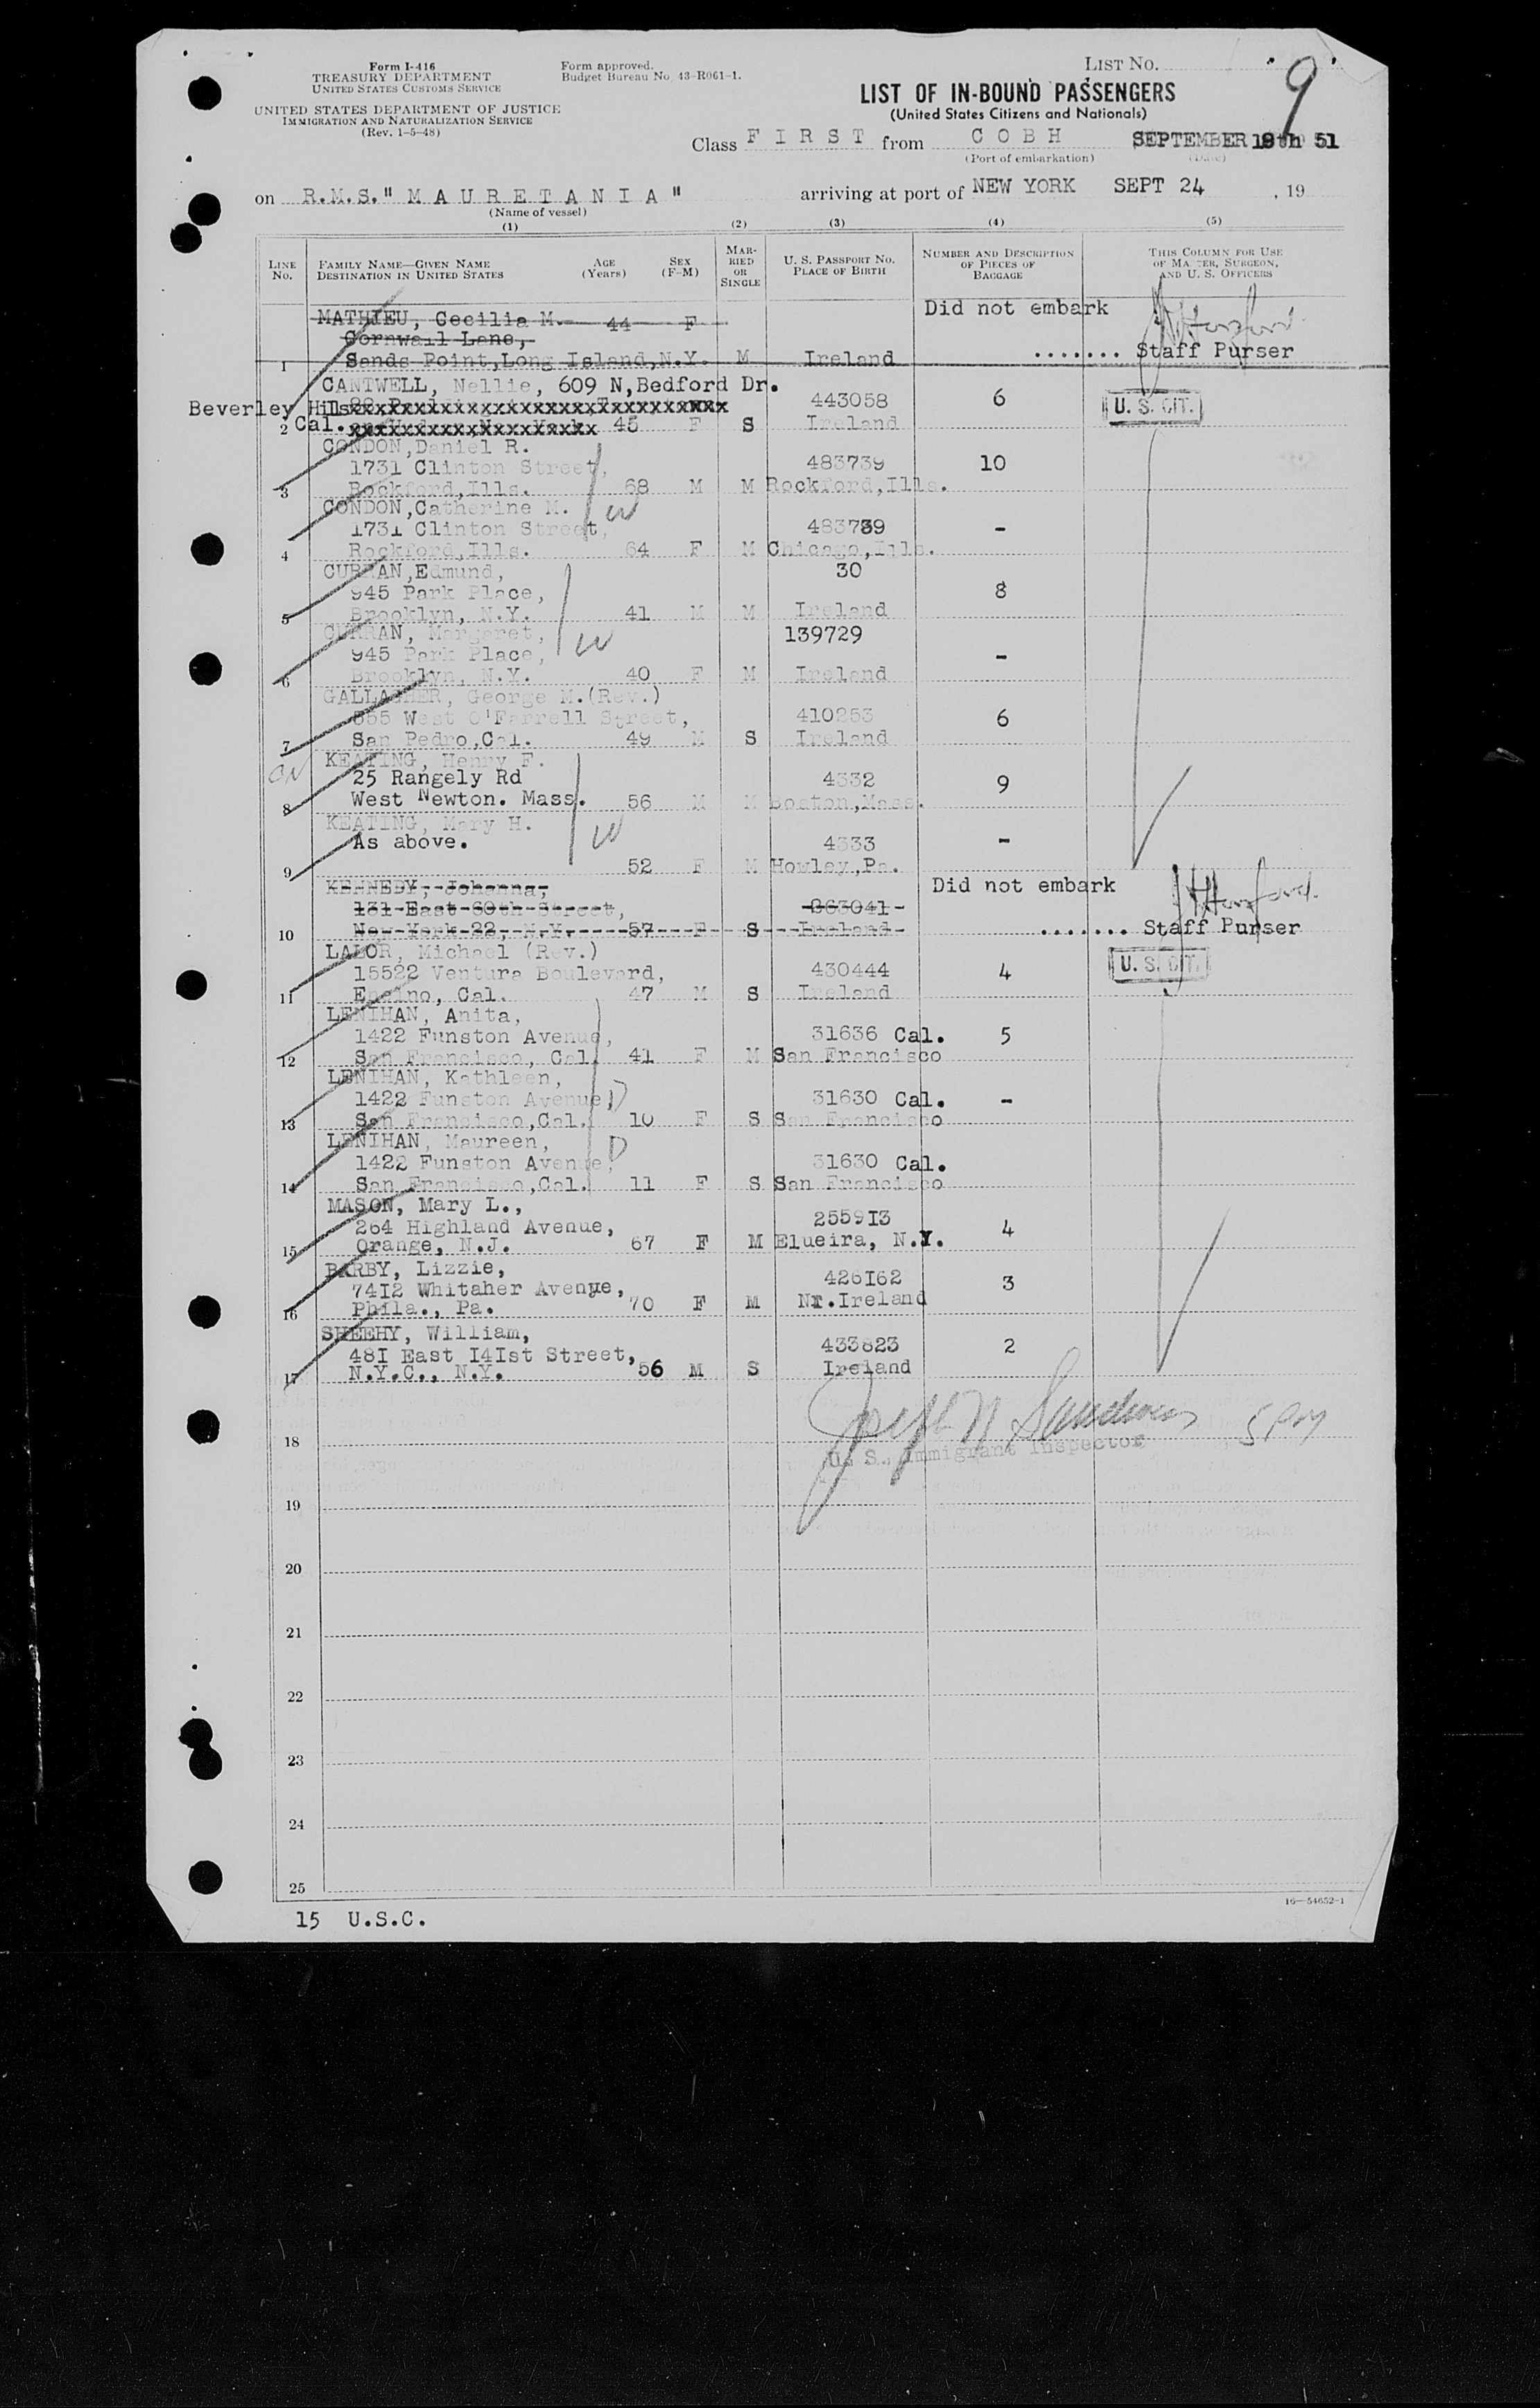 Form I-416
TREASURY DEPARTMENT
UNITED STATES CUSTOMS SERVICE
UNITED STATES DEPARTMENT OF JUSTICE
IMMIGRATION AND NATURALIZATION SERVICE
(Rev. 1-5-48)
Form approved.
Budget Bureau No. 43-R061-1.
LIST No. 9
LIST OF IN-BOUND PASSENGERS
(United States Citizens and Nationals)
Class FIRST from COBH SEPTEMBER 18th 51
(Port of embarkation) (Date)
on R.M.S." MAURETANIA " arriving at port of NEW YORK SEPT 24 , 19
(Name of vessel)
(1) (2) (3) (4) (5)
LINE No. FAMILY NAME—GIVEN NAME DESTINATION IN UNITED STATES AGE (Years) SEX (F-M) MARRIED OR SINGLE U. S. PASSPORT No. PLACE OF BIRTH NUMBER AND DESCRIPTION OF PIECES OF BAGGAGE THIS COLUMN FOR USE OF MASTER, SURGEON, AND U. S. OFFICERS
MATHIEU, Cecilia M. 44 F Did not embark
Cornwall Lane,
1 Sands Point,Long Island,N.Y. M Ireland ....... Staff Purser
CANTWELL, Nellie, 609 N,Bedford Dr. 443058 6 U. S. CIT.
Beverley Hils
2 Cal. 45 F S Ireland
CONDON,Daniel R.
1731 Clinton Street, 483739 10
3 Rockford,Ills. 68 M M Rockford,Ills.
CONDON,Catherine M. W
1731 Clinton Street, 483739 -
4 Rockford,Ills. 64 F M Chicago,Ills.
CURRAN,Edmund, 30
945 Park Place, 8
5 Brooklyn, N.Y. 41 M M Ireland
CURRAN, Margaret, W 139729
945 Park Place, -
6 Brooklyn, N.Y. 40 F M Ireland
GALLAGHER, George M.(Rev.)
555 West O'Farrell Street, 410253 6
7 San Pedro,Cal. 49 M S Ireland
KEATING, Henry F.
25 Rangely Rd 4332 9
8 West Newton. Mass. 56 M M Boston,Mass.
KEATING, Mary H. W
As above. 4333 -
9 52 F M Howley,Pa.
KENNEDY, Johanna, Did not embark
131 East 69th Street, 963041
10 New York 22, N.Y. 57 F S Ireland ....... Staff Purser
LALOR, Michael (Rev.)
15522 Ventura Boulevard, 430444 4 U. S. CIT.
11 Encino, Cal. 47 M S Ireland
LENIHAN, Anita,
1422 Funston Avenue, 31636 Cal. 5
12 San Francisco, Cal. 41 F M San Francisco
LENIHAN, Kathleen,
1422 Funston Avenue, D 31630 Cal. -
13 San Francisco,Cal. 10 F S San Francisco
LENIHAN, Maureen, D
1422 Funston Avenue, 31630 Cal.
14 San Francisco,Cal. 11 F S San Francisco
MASON, Mary L.,
264 Highland Avenue, 255913 4
15 Orange, N.J. 67 F M Elueira, N.Y.
BARBY, Lizzie,
7412 Whitaher Avenye, 426162 3
16 Phila., Pa. 70 F M Nr.Ireland
SHEEHY, William,
481 East 141st Street, 433823 2
17 N.Y.C., N.Y. 56 M S Ireland
5 PM
18 U. S. Immigrant Inspector
19
20
21
22
23
24
25
16—54652-1
15 U.S.C.